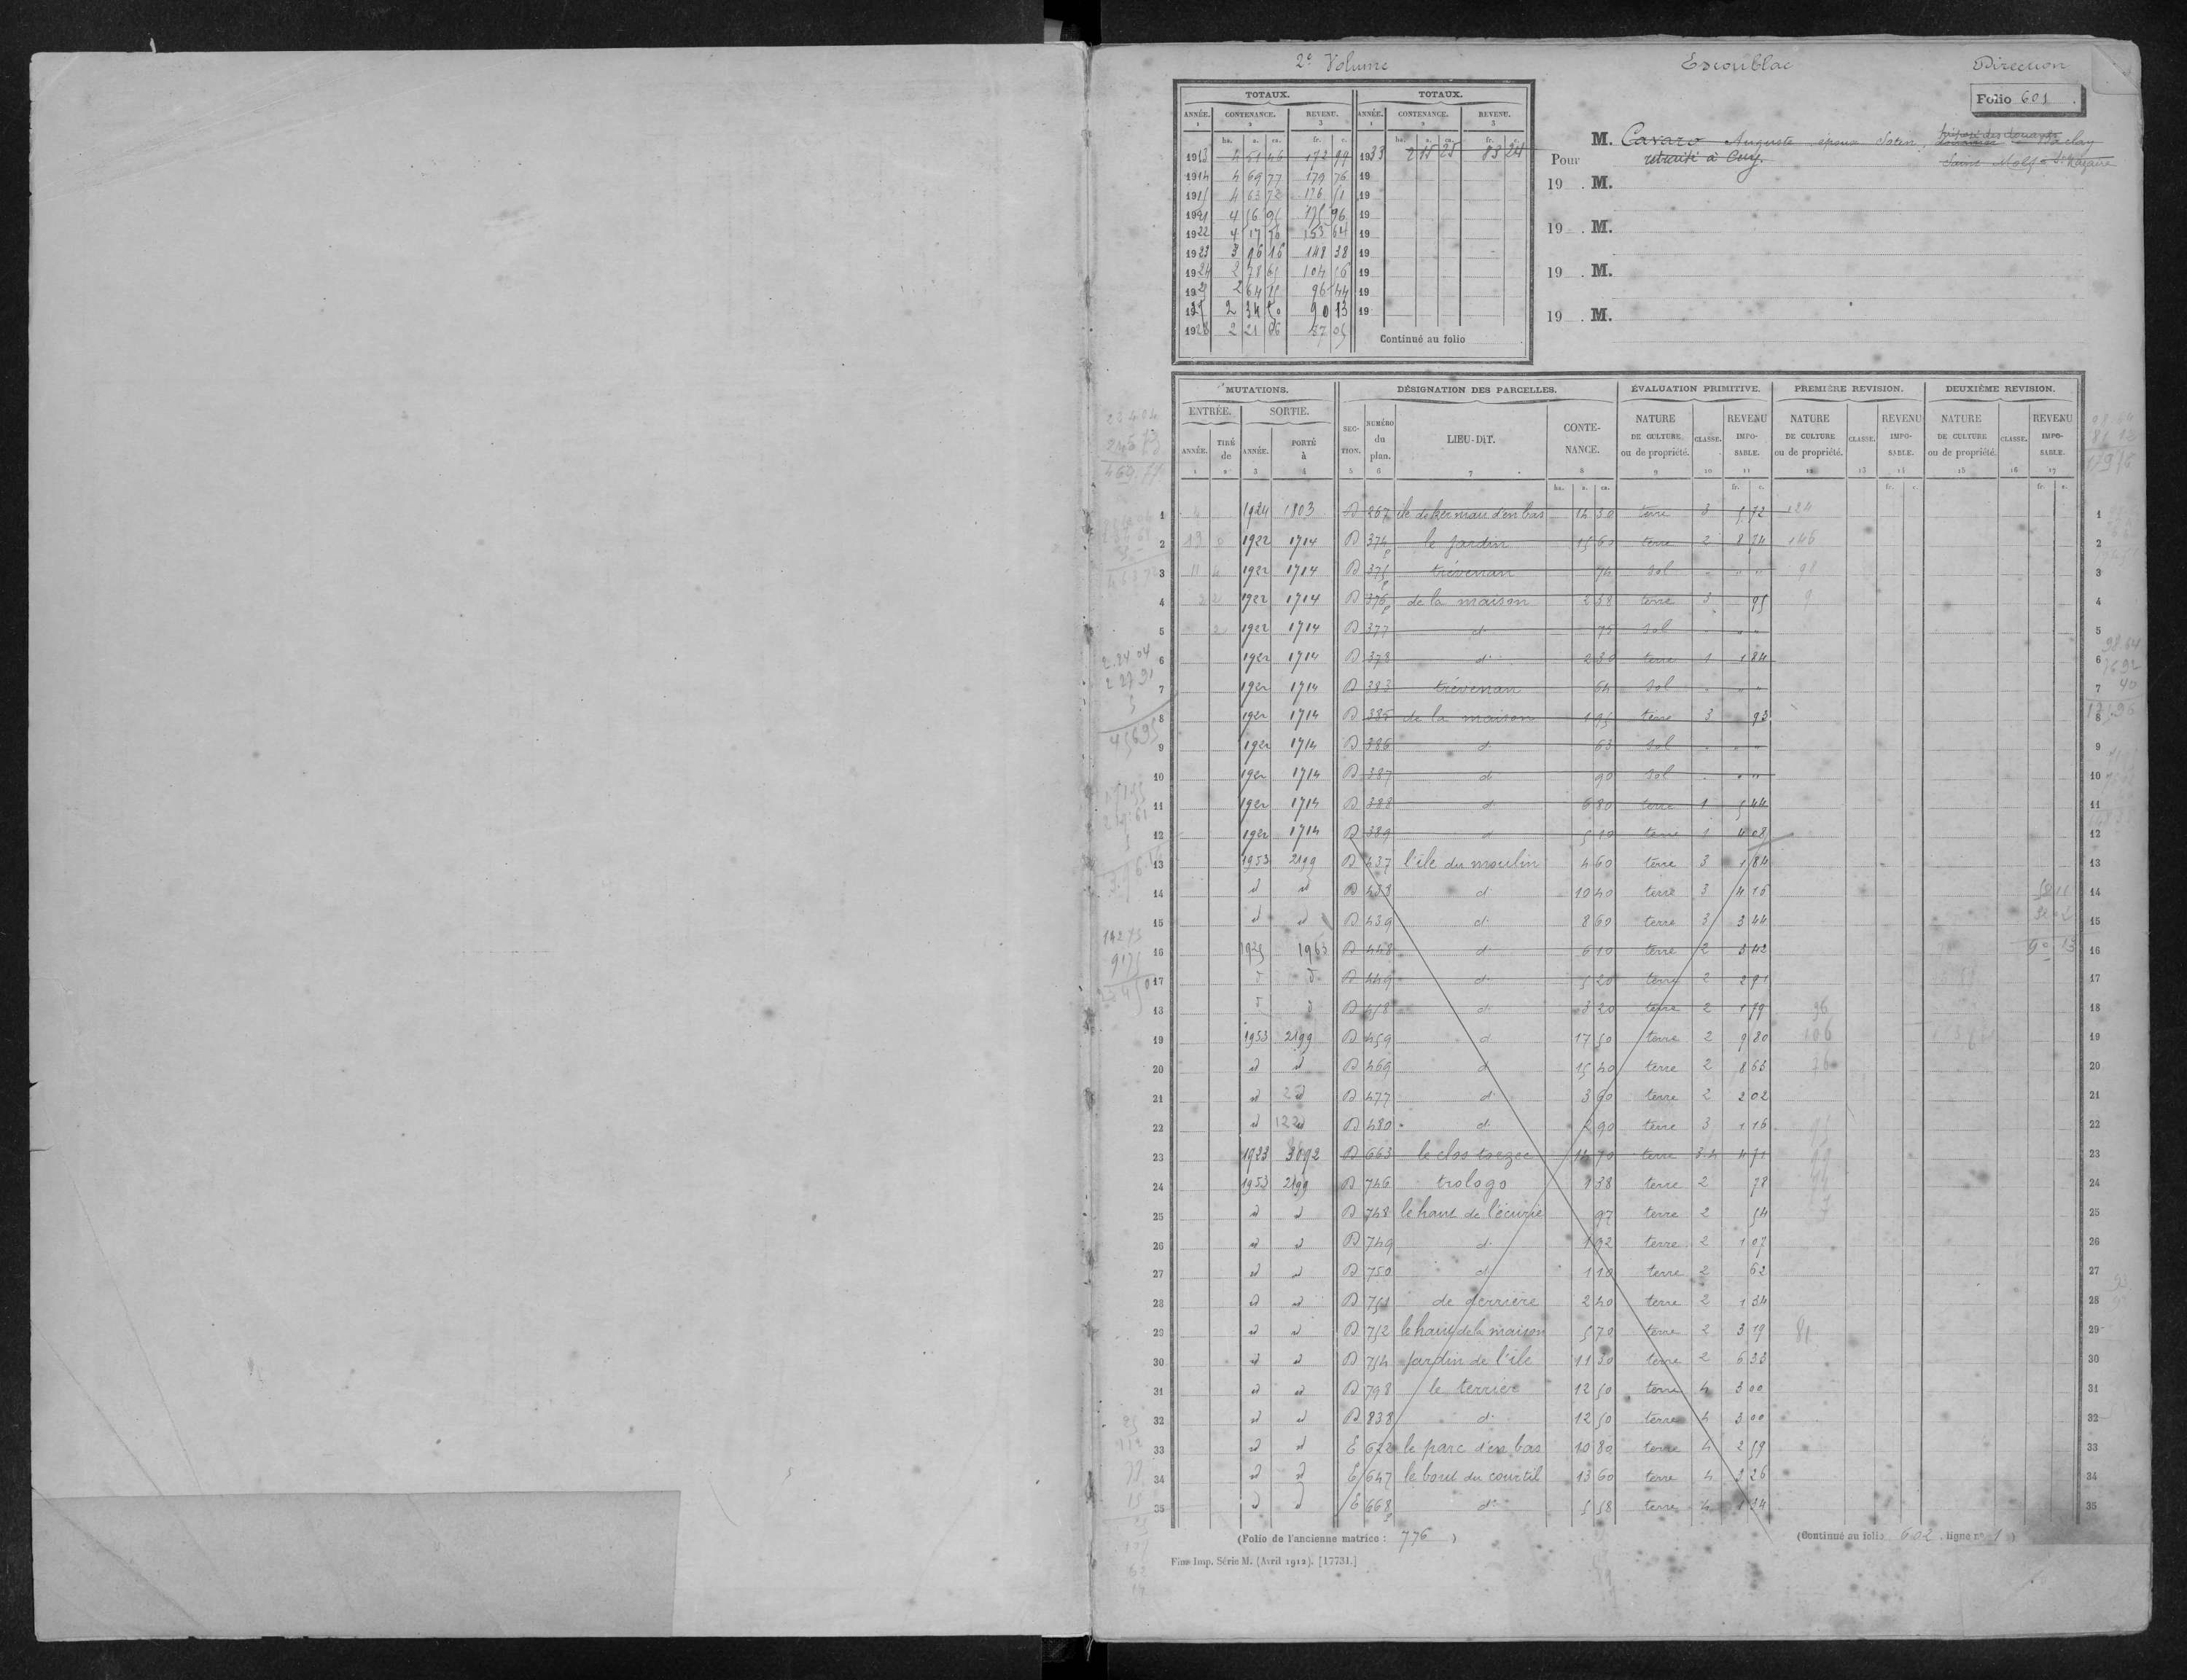 2e Volume Escoublac Direction
Folio 601.
TOTAUX. TOTAUX.
ANNÉE. CONTENANCE. REVENU. ANNÉE. CONTENANCE. REVENU.
1 2 3 1 2 3
ha. a. ca. fr. c. ha. a. ca. fr. c.
1913 4 51 46 172 99 1933 2 15 25 83 24
1914 4 69 77 179 76 19
1915 4 63 72 176 51 19
1921 4 56 95 175 96 19
1922 4 17 56 153 64 19
1923 3 96 16 148 38 19
1924 2 78 65 104 56 19
192 2 64 15 96 44 19
1925 2 34 50 90 13 19
1928 2 21 06 87 05
Continué au folio
Pour M. Cavaro Auguste époux Sotin,
retraité à Cuy.
Saint Molf St Nazaire
19 . M.
19 . M.
19 . M.
19 . M.
MUTATIONS. DÉSIGNATION DES PARCELLES. ÉVALUATION PRIMITIVE. PREMIÈRE REVISION. DEUXIÈME REVISION.
ENTRÉE. SORTIE. SECTION. NUMÉRO du plan. LIEU-DIT. CONTENANCE. NATURE DE CULTURE ou de propriété. CLASSE. REVENU IMPOSABLE. NATURE DE CULTURE ou de propriété. CLASSE. REVENU IMPOSABLE. NATURE DE CULTURE ou de propriété. CLASSE. REVENU IMPOSABLE.
ANNÉE. TIRÉ de ANNÉE. PORTÉ à
1 2 3 4 5 6 7 8 9 10 11 12 13 14 15 16 17
ha. a. ca. fr. c. fr. c. fr. c.
1 1924 1803 D 267 île de Kermau d'en bas 14 30 terre 3 5 72 124 1
2 1922 1714 D 374p le jardin 15 60 terre 2 8 74 146 2
3 1922 1714 D 375p trévenan 74 sol " " " 98 3
4 1922 1714 D 376p de la maison 2 38 terre 3 95 9 4
5 1922 1714 D 377 do 75 sol " " " 5
6 1922 1714 D 378 do 2 30 terre 1 1 84 6
7 1922 1714 D 383 trévenan 64 sol " " " 7
8 1922 1714 D 385 de la maison 1 95 terre 3 93 8
9 1922 1714 D 386 do 63 sol " " " 9
10 1922 1714 D 387 do 90 sol " " " 10
11 1922 1714 D 388 do 6 80 terre 1 5 44 11
12 1922 1714 D 389 do 5 10 terre 1 4 08 12
13 1953 2199 D 437 l'île du moulin 4 60 terre 3 1 84 13
14 d d D 438 do 10 40 terre 3 4 16 14
15 d d D 439 do 8 60 terre 3 3 44 15
16 1925 1963 D 448 do 6 10 terre 2 3 42 90 13 16
17 d d D 449 do 5 20 terre 2 2 91 17
18 d d D 458 do 3 20 terre 2 1 79 96 18
19 1953 2199 D 459 do 17 50 terre 2 9 80 106 19
20 d d D 469 do 15 40 terre 2 8 63 76 20
21 d d D 477 do 3 90 terre 2 2 02 21
22 d d D 480 do 2 90 terre 3 1 16 22
23 1923 D 663 le clos toezec 14 70 terre 3.4 4 71 23
24 1953 2199 D 746 trologo 1 38 terre 2 78 24
25 d d D 748 le haut de l'écurie 97 terre 2 54 25
26 d d D 749 do 1 92 terre 2 1 07 26
27 d d D 750 do 1 10 terre 2 62 27
28 d d D 751 de derrière 2 40 terre 2 1 34 28
29 d d D 752 le haut de la maison 5 70 terre 2 3 19 81 29
30 d d D 754 jardin de l'île 11 30 terre 2 6 33 30
31 d d D 798 le terrier 12 50 terre 4 3 00 31
32 d d D 838 do 12 50 terre 4 3 00 32
33 d d E 622 le parc d'en bas 10 80 terre 4 2 59 33
34 d d E 647 le bout du courtil 13 60 terre 4 3 26 34
35 d d E 668p do 5 58 terre 4 1 34 35
(Folio de l'ancienne matrice : 776 ) (Continué au folio 602 ligne no 1 )
Fins Imp. Série M. (Avril 1912). [17731.]